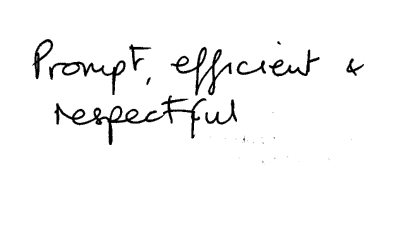 Prompt, efficient &
respectful